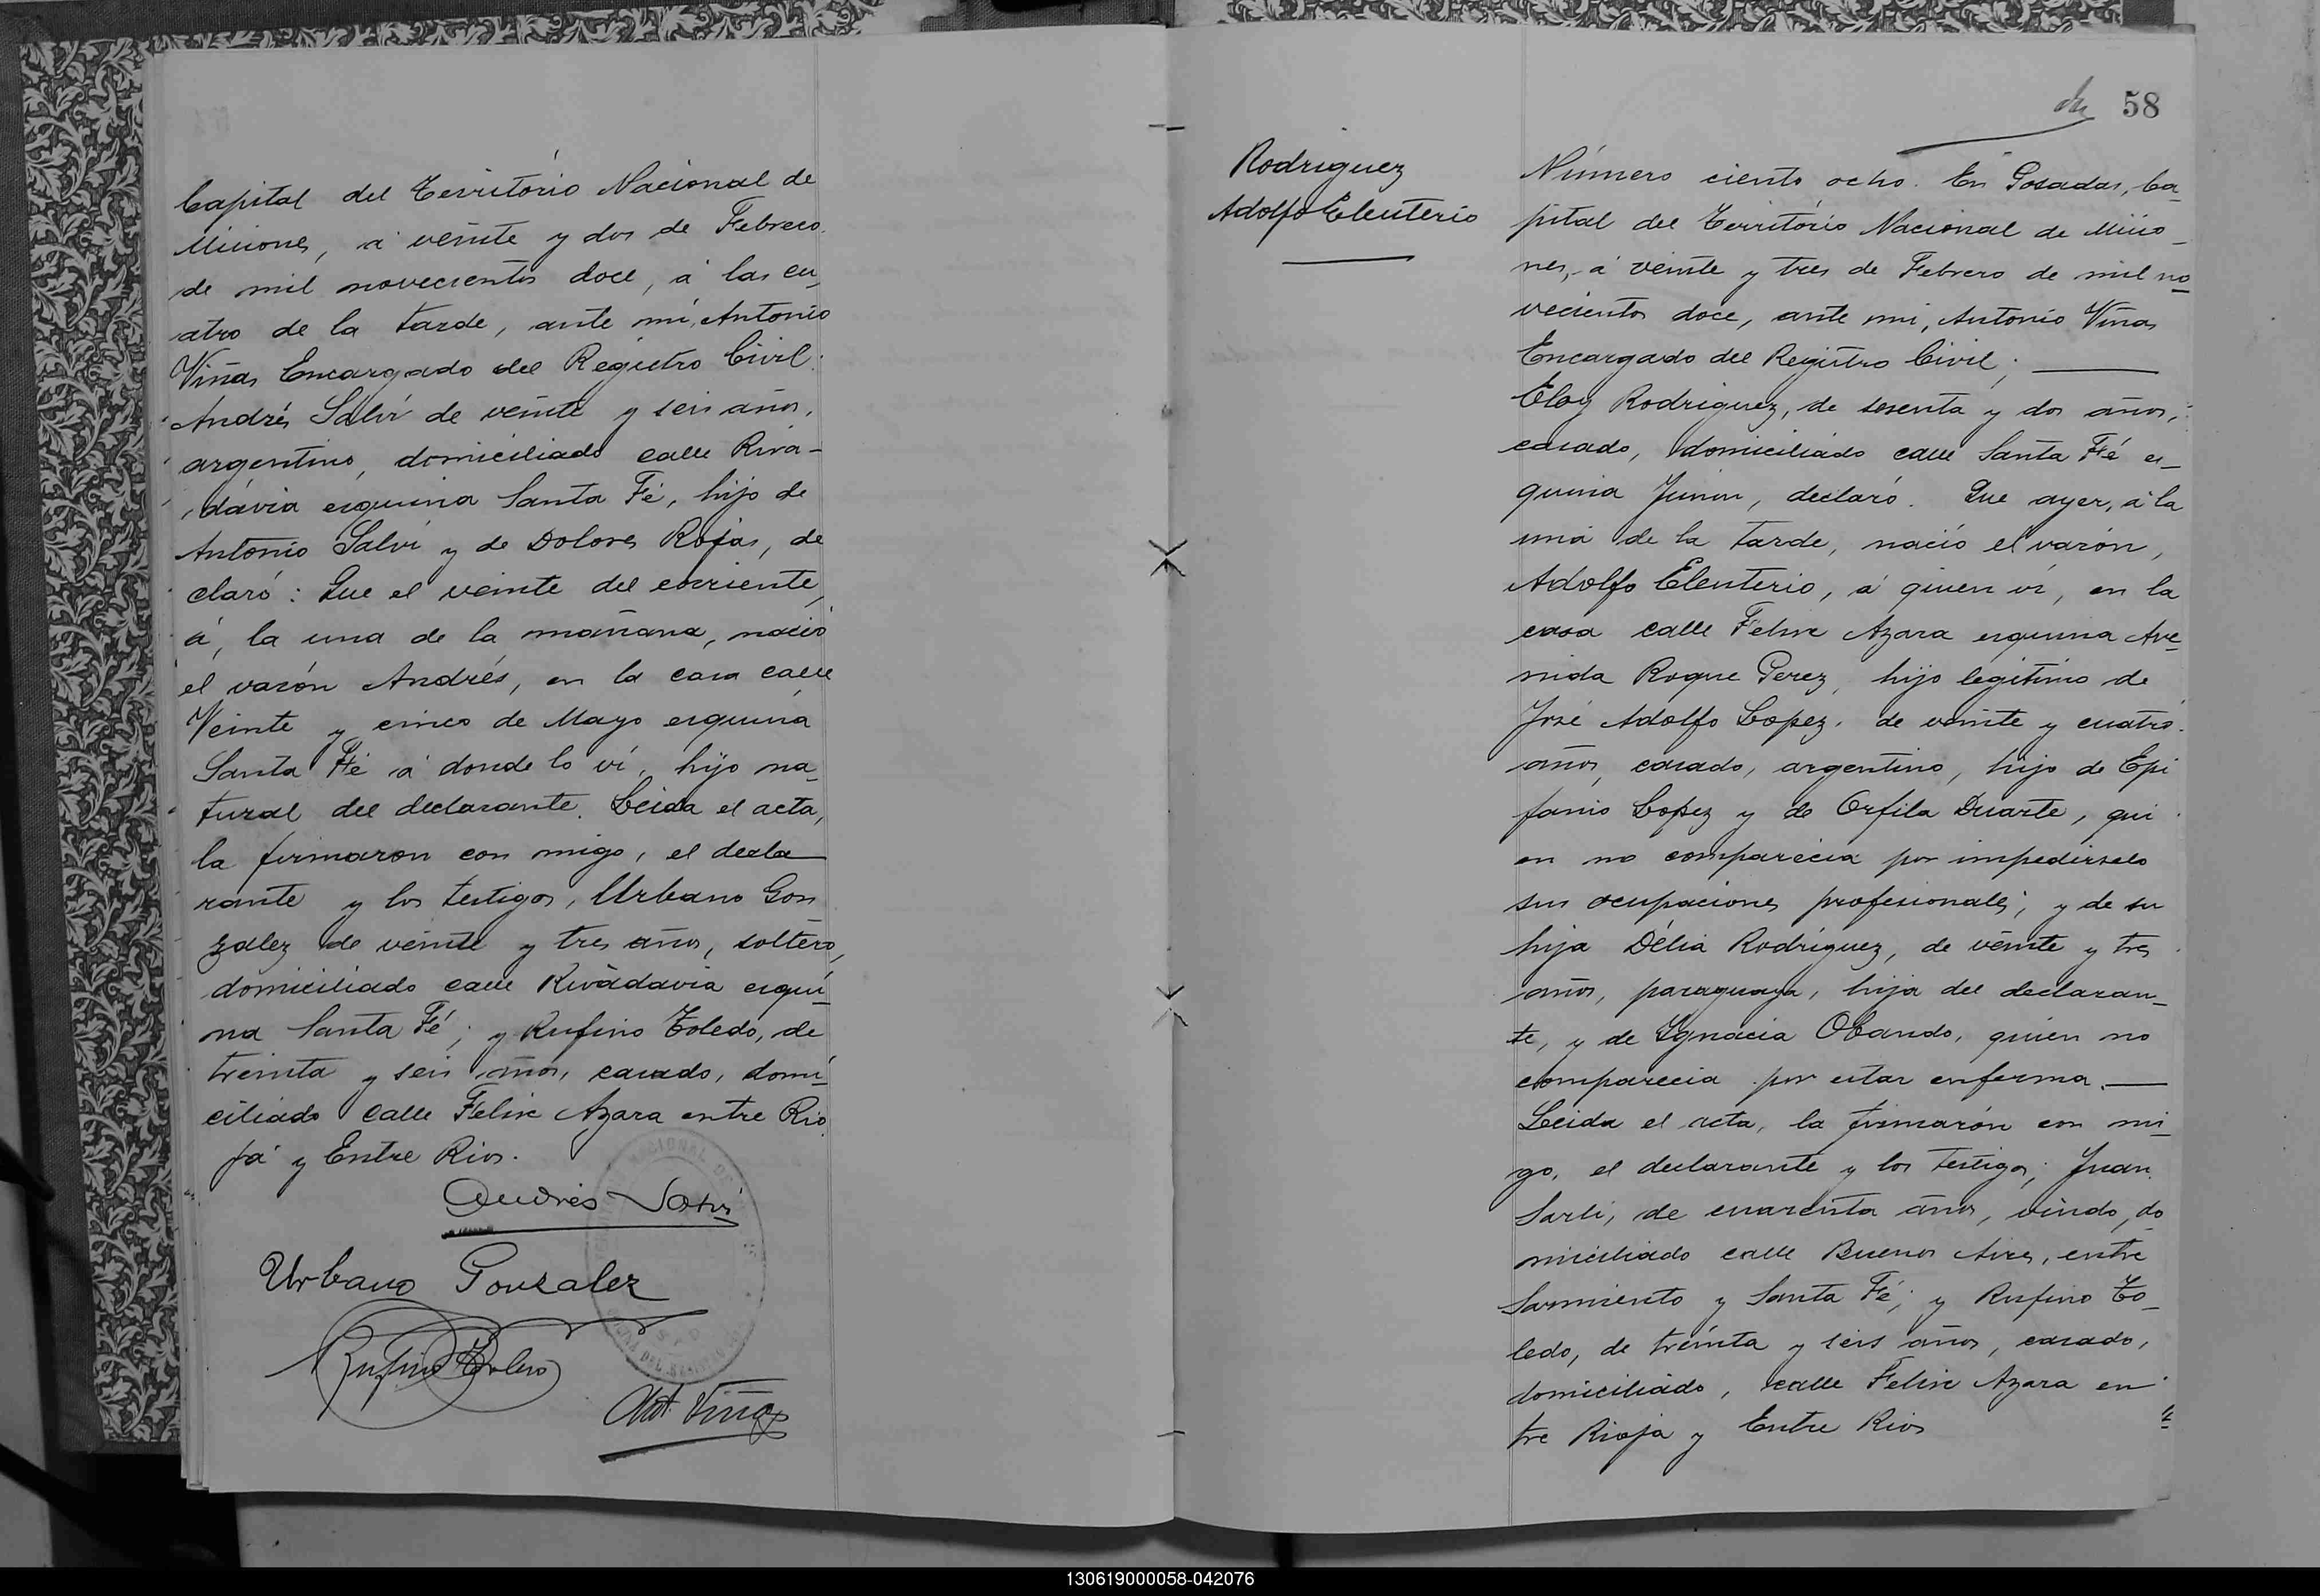 Capital del Territorio Nacional de
Misiones, á veinte y dos de Febrero
de mil novecientos doce, á las cu_
atro de la tarde, ante mi, Antonio
Viñas Encargado del Registro Civil:
Andrés Salvi de veinte y seis años,
argentino, domiciliado calle Riva-
davia esquina Santa Fé, hijo de
Antonio Salvi y de Dolores Rojas, de
claró: Que el veinte del corriente,
á, la una de la mañana, nació
el varón Andrés, en la casa calle
Veinte y cinco de Mayo esquina
Santa Fé á donde lo ví, hijo na_
tural del declarante. Leida el acta,
la firmaron con migo, el decla
rante y los testigos, Urbano Gon
zalez de veinte y tres años, soltero,
domiciliado calle Rivadavia esqui_
na Santa Fé; y Rufino Toledo, de
treinta y seis años, casado, domi_
ciliado calle Felix Azara entre Rio
ja y Entre Rios.
Andrés Salvi
Urbano Gonzalez
Rufino Toledo
Ant. Viñas
58
Rodriguez
Adolfo Eleuterio
Número ciento ocho. En Posadas, Ca_
pital del Territorio Nacional de Misio_
nes, á veinte y tres de Febrero de mil no_
vecientos doce, ante mi, Antonio Viñas
Encargado del Registro Civil;
Eloy Rodriguez, de sesenta y dos años,
casado, domiciliado calle Santa Fé es_
quina Junin, declaró. Que ayer, á la
una de la tarde, nació el varón,
Adolfo Eleuterio, á quien ví, en la
casa calle Felix Azara esquina Ave_
nida Roque Perez, hijo legitimo de
José Adolfo Lopez, de veinte y cuatro
años, casado, argentino, hijo de Epi
fanio Lopez y de Orfila Duarte, qui
en no comparecia por impedirselo
sus ocupaciones profesionales; y de su
hija Délia Rodriguez, de veinte y tres
años, paraguaya, hija del declaran_
te, y de Ignacia Obando, quien no
comparecia por estar enferma.
Leida el acta, la firmarón con mi_
go, el declarante y los testigos; Juan
Sarli, de cuarenta años, viudo, do_
miciliado calle Buenos Aires, entre
Sarmiento y Santa Fé; y Rufino To_
ledo, de treinta y seis años, casado,
domiciliado, calle Felix Azara en
tre Rioja y Entre Rios
130619000058-042076